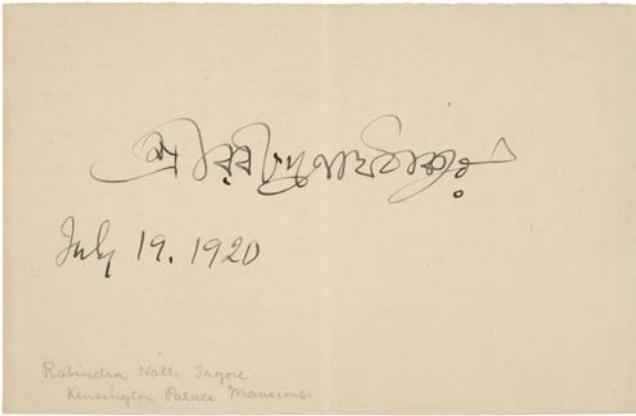 শ্রীরবীন্দ্রনাথ ঠাকুর
July 19. 1920
Rabindra Nath Tagore
Kensington Palace Mansions